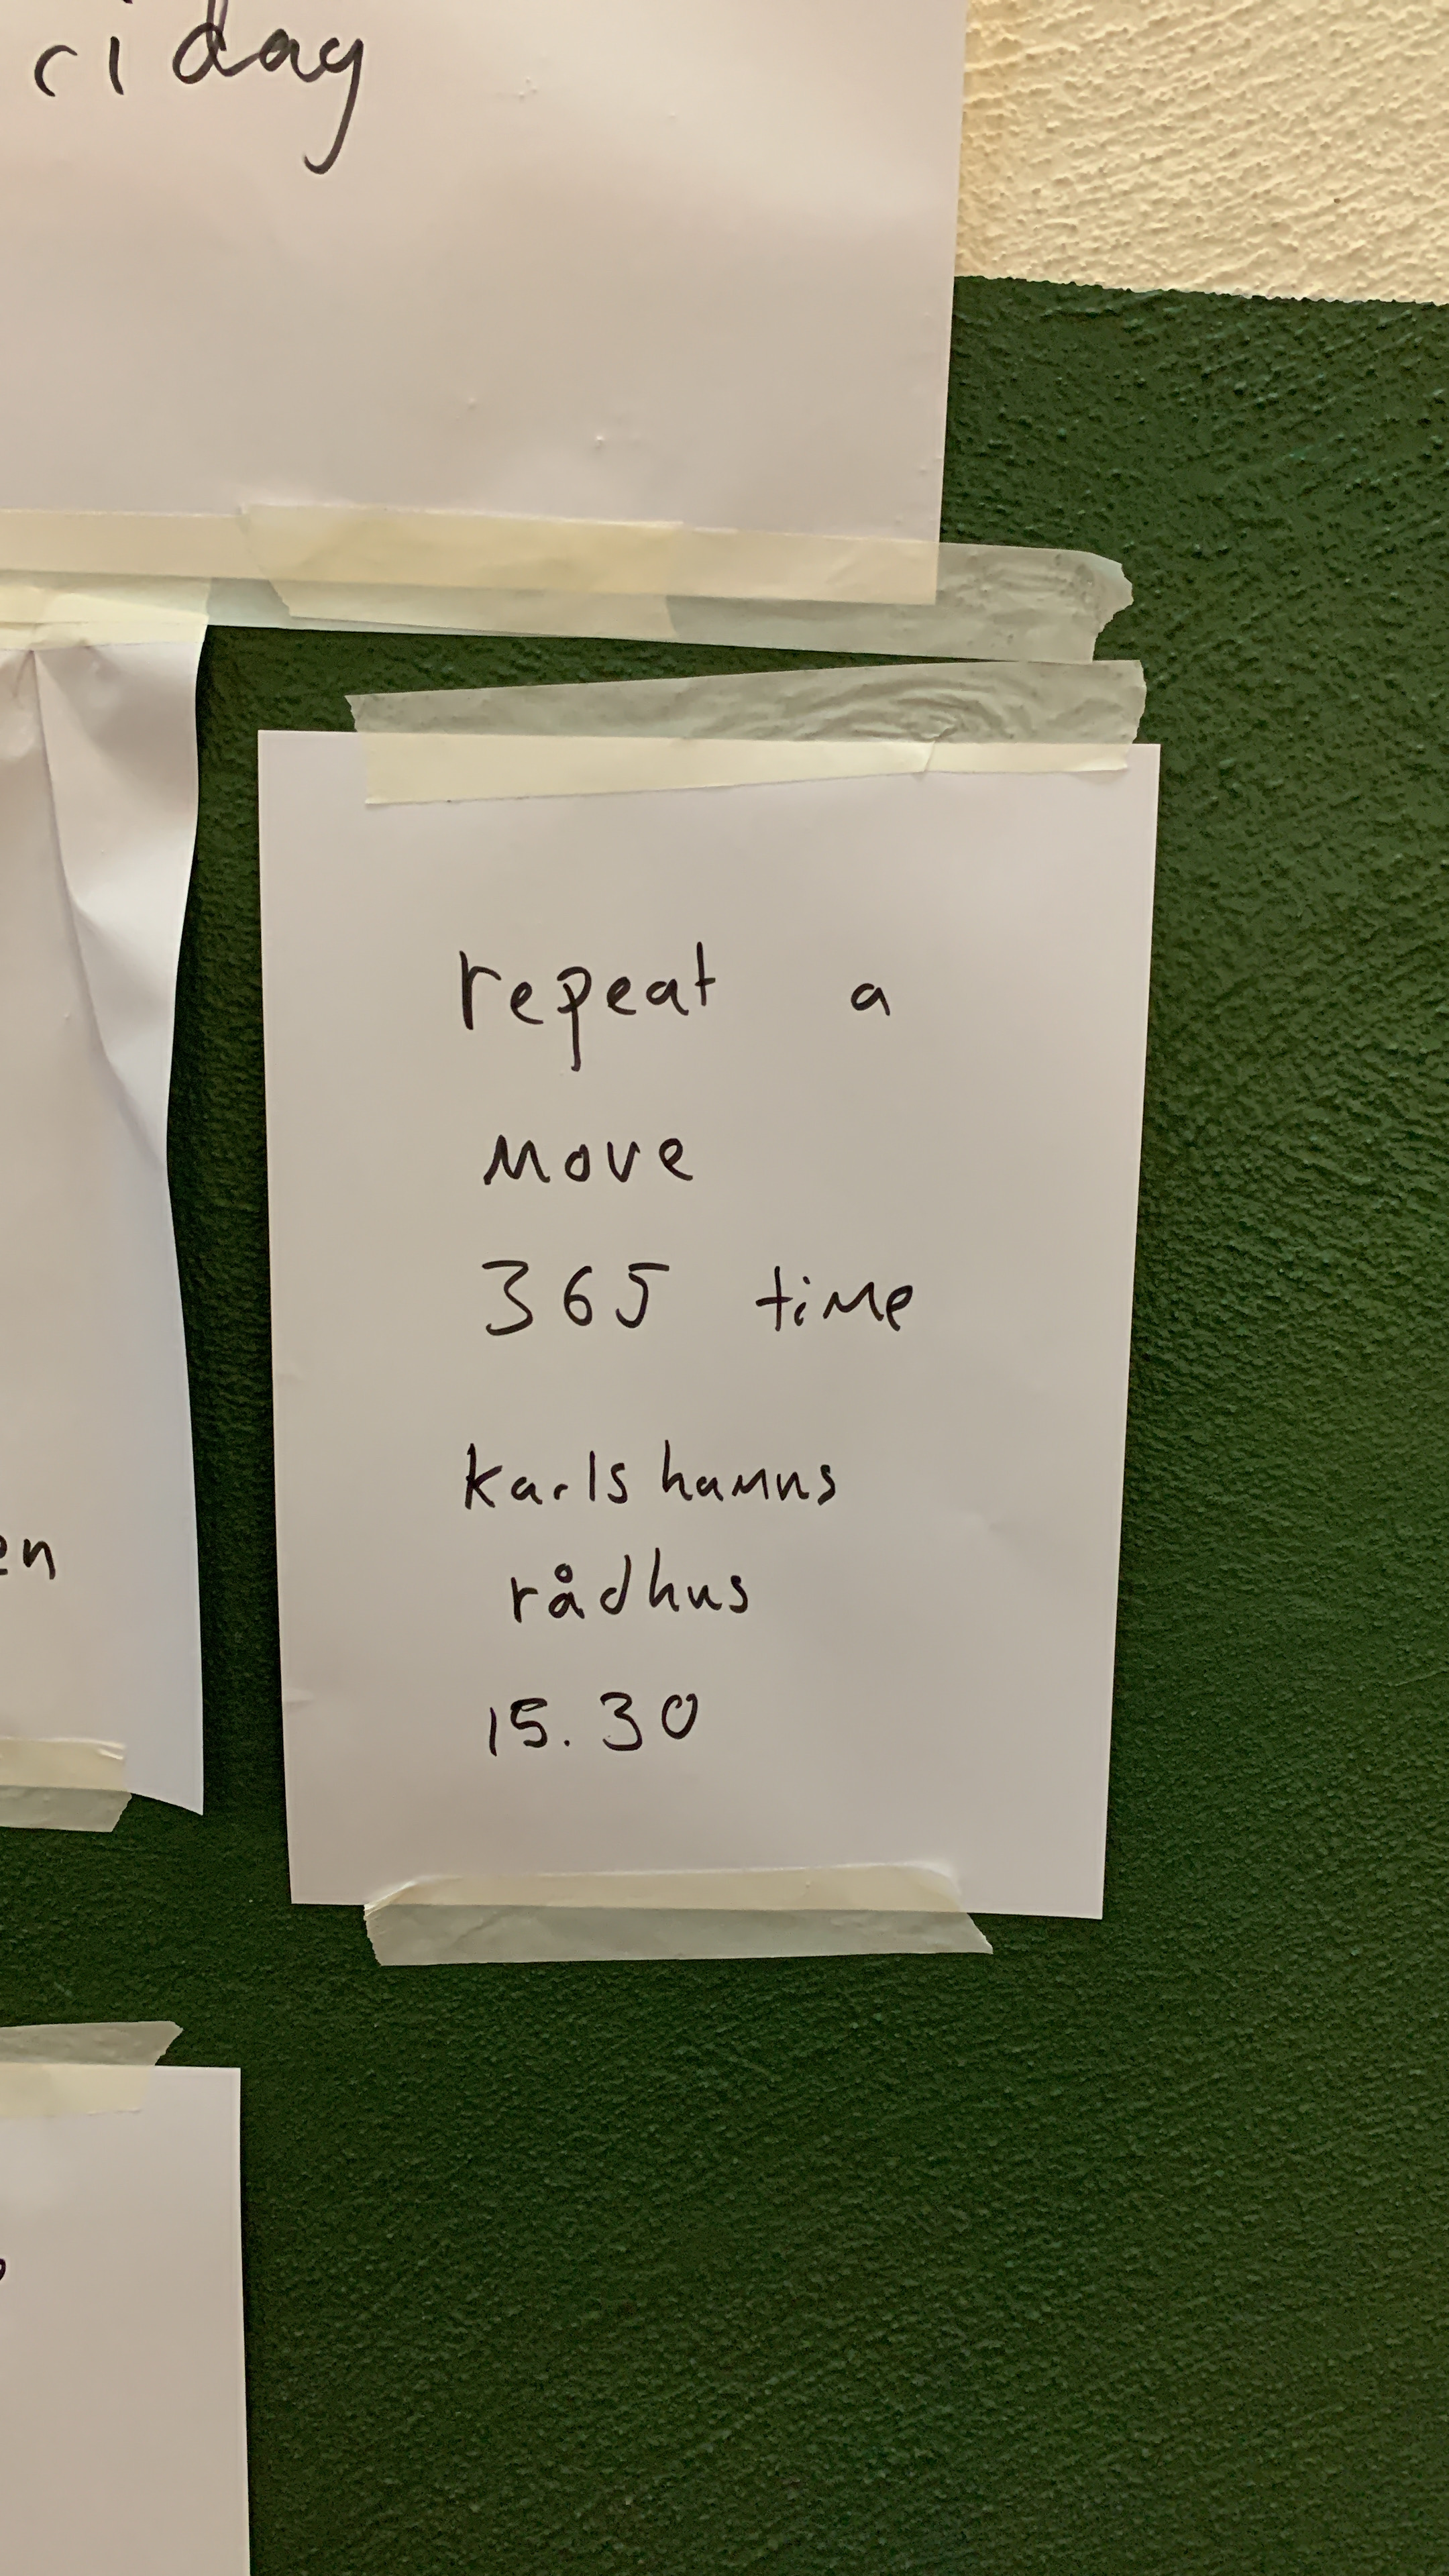 riday
repeat a
move
365 time
karlshamns
rådhus
15.30
en